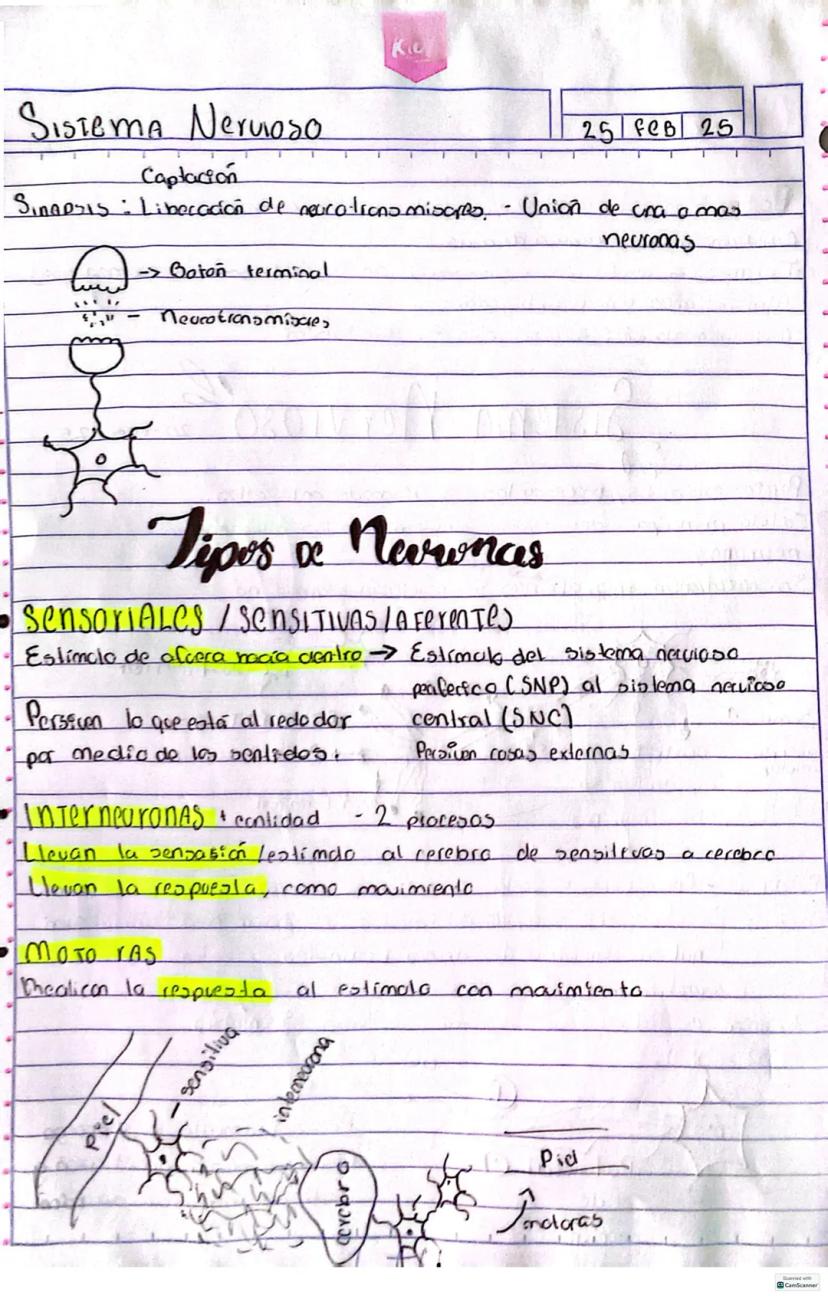 Kiel
Sistema Nervioso
25 | FEB | 25
Captación
Sinapsis : Liberación de neurotransmisores. - Unión de una o mas
neuronas
-> Botón terminal
- Neurotransmisores
Tipos de Neuronas
SENSORIALES / SENSITIVAS / AFERENTES
Estímulo de afuera hacia dentro → Estímulo del sistema nervioso
periferico (SNP) al sistema nervioso
Persiven lo que está al rededor central (SNC)
por medio de los sentidos. Persiven cosas externas
INTERNEURONAS + cantidad - 2 procesos
Llevan la sensasión / estímulo al cerebro de sensitivas a cerebro
Llevan la respuesta, como movimiento
MOTORAS
realican la respuesta al estímulo con movimiento
sensitiva
interneurona
Piel
cerebro
Piel
motoras
Scanned with
CamScanner